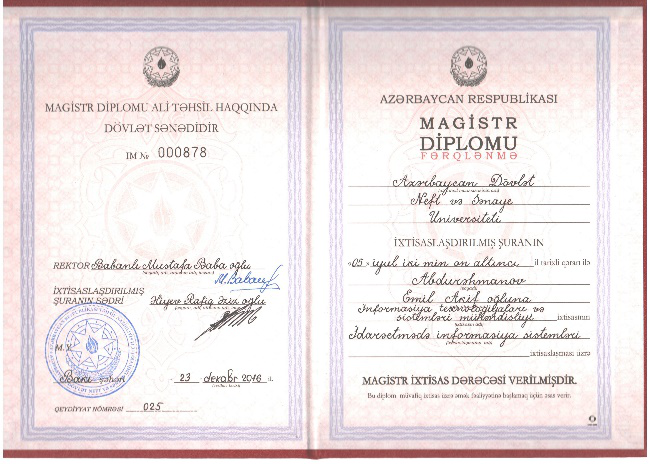 MAGİSTR DİPLOMU ALİ TƏHSİL HAQQINDA
DÖVLƏT SƏNƏDİDİR
IM № 000878
REKTOR Babanlı Mustafa Baba oğlu
İXTİSASLAŞDIRILMIŞ
ŞURANIN SƏDRİ Rafiq Əziz oğlu
M.Y.
Bakı şəhəri 23 dekabr 2016 il.
QEYDİYYAT NÖMRƏSİ 025
AZƏRBAYCAN RESPUBLİKASI
MAGİSTR
DİPLOMU
FƏRQLƏNMƏ
Azərbaycan Dövlət
Neft və Sənaye
Universiteti
İXTİSASLAŞDIRILMIŞ ŞURANIN
«05» iyul iki min on altıncı il tarixli qərarı ilə
Abdurəhmanov
Emil Akif oğluna
İnformasiya texnologiyaları və
sistemləri mühəndisliyi ixtisasının
İdarəetmədə informasiya sistemləri
ixtisaslaşması üzrə
MAGİSTR İXTİSAS DƏRƏCƏSİ VERİLMİŞDİR.
Bu diplom müvafiq ixtisas üzrə əmək fəaliyyətinə başlamaq üçün əsas verir.